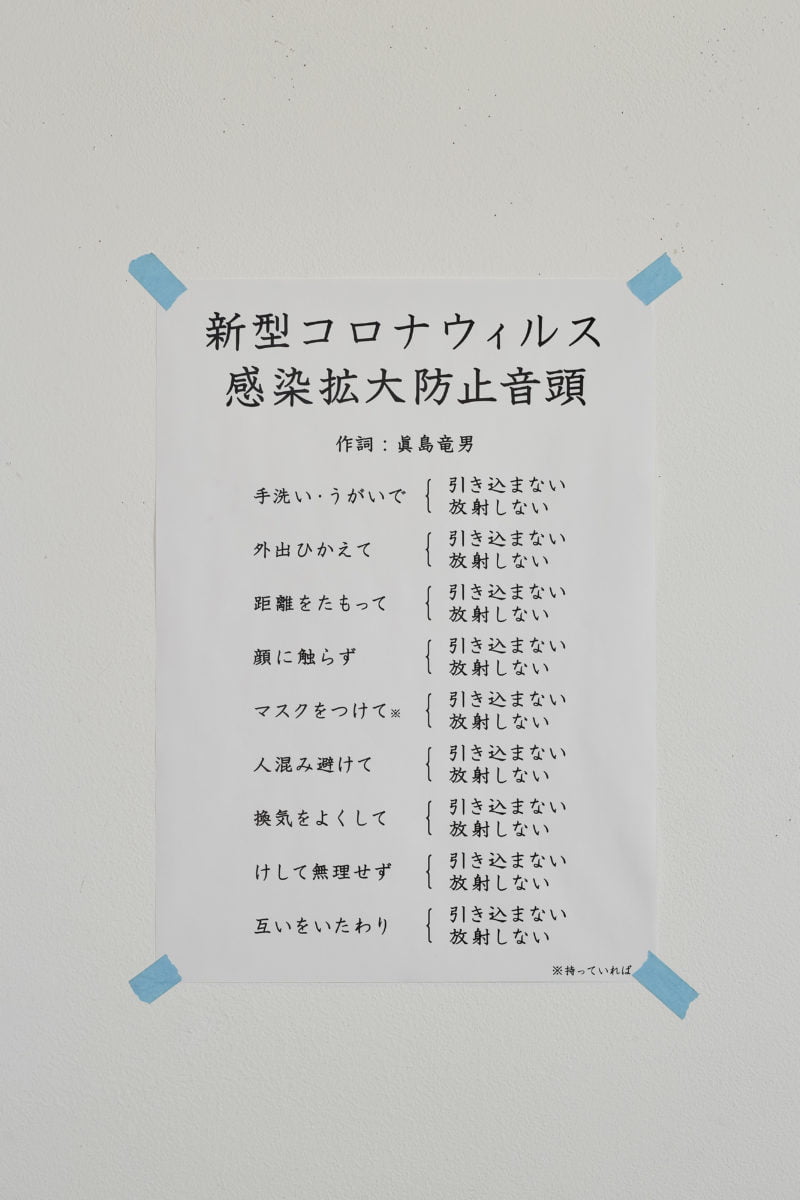 新型コロナウィルス
感染拡大防止音頭
作詞：眞島竜男
手洗い・うがいで｛引き込まない
放射しない
外出ひかえて｛引き込まない
放射しない
距離をたもって｛引き込まない
放射しない
顔に触らず｛引き込まない
放射しない
マスクをつけて※｛引き込まない
放射しない
人混み避けて｛引き込まない
放射しない
換気をよくして｛引き込まない
放射しない
けして無理せず｛引き込まない
放射しない
互いをいたわり｛引き込まない
放射しない
※持っていれば